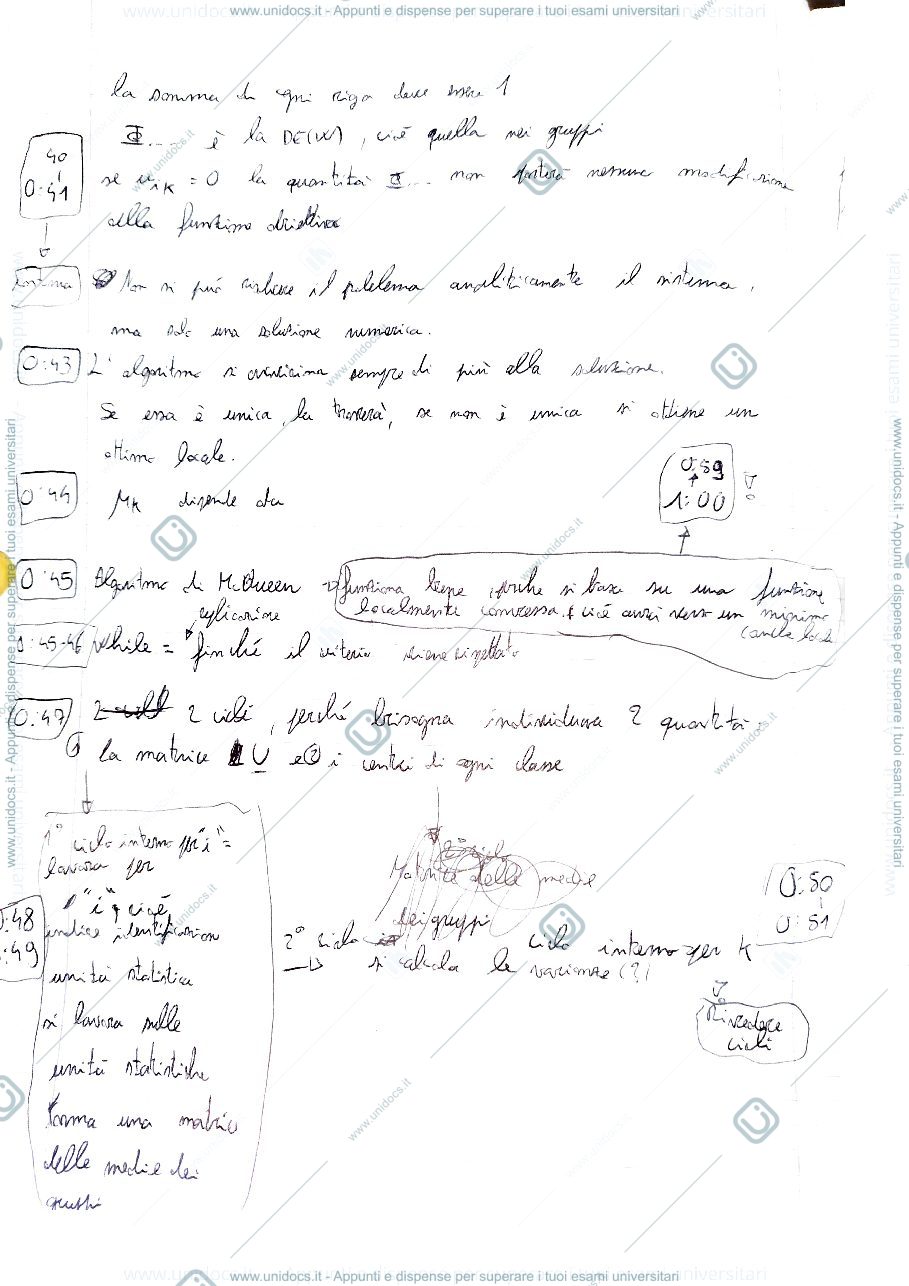 www.unidocs.it - Appunti e dispense per superare i tuoi esami universitari
la somma di ogni riga deve essere 1
Φ.... è la DE(W), cioè quella nei gruppi
40
0:41
se uik = 0 la quantità Φ.... non porterà nessuna modificazione
alla funzione obiettivo
Non si può risolvere il problema analiticamente il sistema,
ma solo una soluzione numerica.
0:43 L'algoritmo si avvicina sempre di più alla soluzione.
Se essa è unica, la troverà, se non è unica si ottiene un
ottimo locale.
0:59
1:00
0:44 μk dipende da
0:45 Algoritmo di McQueen funziona bene perché si basa su una funzione
localmente convessa cioè avrai verso un minimo
(anche locale
esplicazione
0:45-46 while = finché il criterio viene rispettato
0:47 2 cicli, perché bisogna individuare 2 quantità:
① la matrice U e ② i centri di ogni classe
1° ciclo interno per "i" =
lavora per
"i", cioè
indice identificazion
unità statistica
si lavora sulle
unità statistiche
forma una matrice
delle medie dei
gruppi
0:48
:49
Matrice delle medie
dei gruppi
2° ciclo ciclo interno per K
si calcola le varianze (?)
0:50
0:51
Rivedere
cicli
www.unidocs.it - Appunti e dispense per superare i tuoi esami universitari